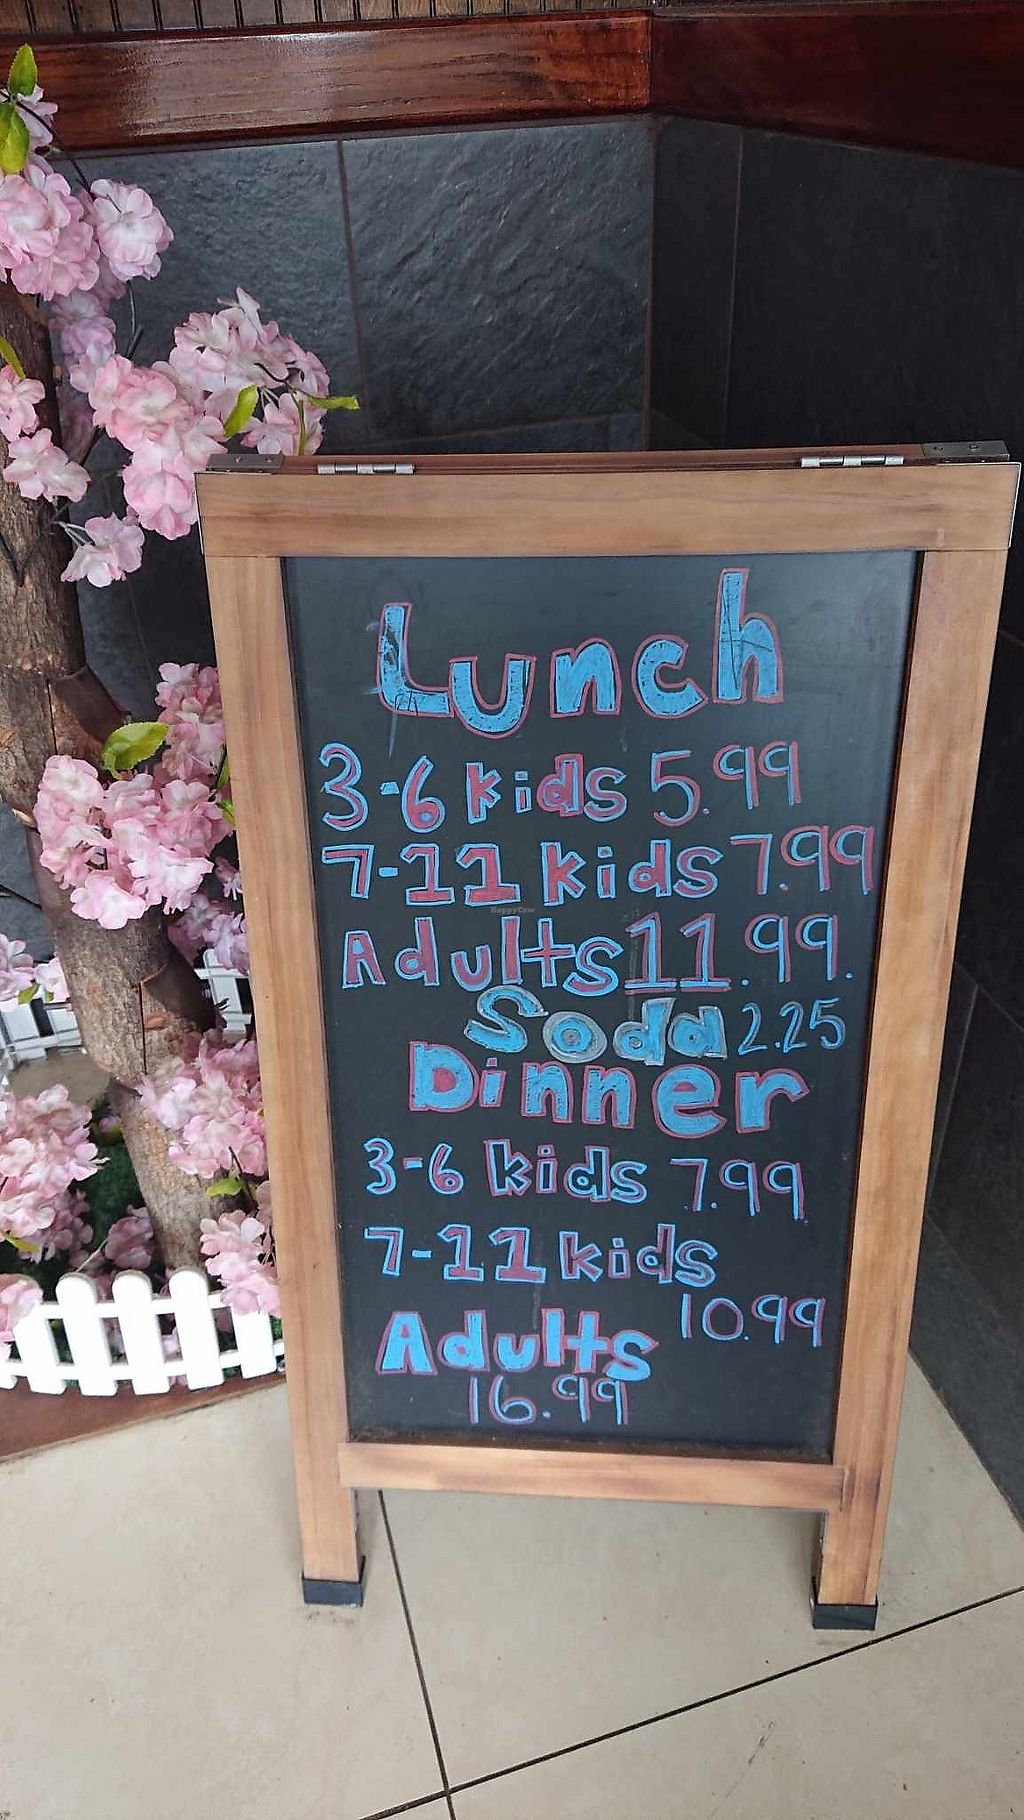 Lunch
3-6 kids 5.99
7-11 kids 7.99
Adults 11.99.
Soda 2.25
Dinner
3-6 kids 7.99
7-11 kids
10.99
Adults
16.99
HappyCow